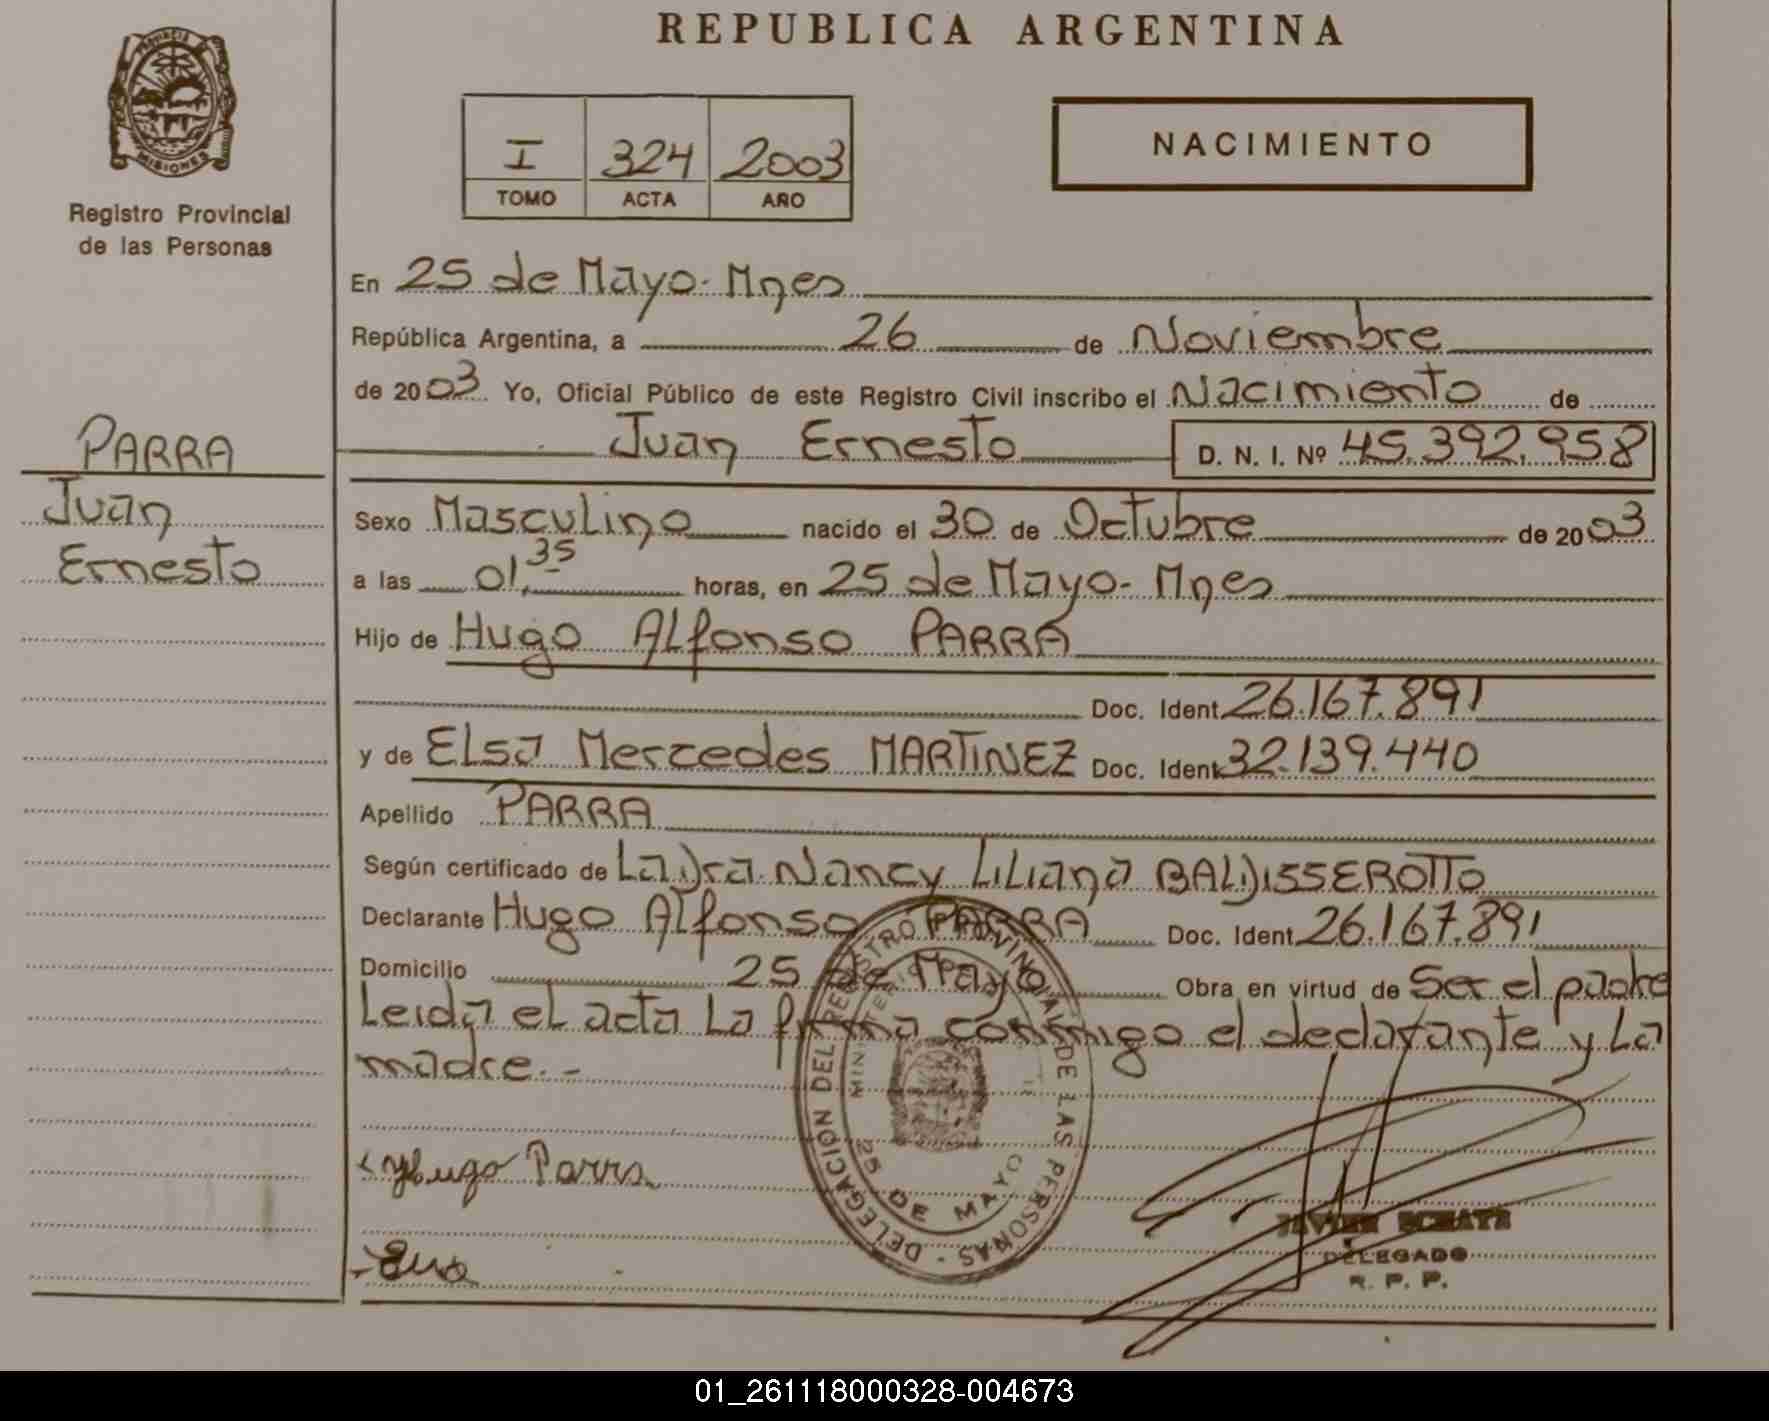 REPUBLICA ARGENTINA
PROVINCIA DE
MISIONES
Registro Provincial
de las Personas
I 324 2003
TOMO ACTA AÑO
NACIMIENTO
PARRA
Juan
Ernesto
En 25 de Mayo-Mnes
República Argentina, a 26 de Noviembre
de 2003 Yo, Oficial Público de este Registro Civil inscribo el Nacimiento de
Juan Ernesto D. N. I. Nº 45.392.958
Sexo Masculino nacido el 30 de Octubre de 2003
a las 01,35 horas, en 25 de Mayo-Mnes
Hijo de Hugo Alfonso PARRA
Doc. Ident. 26.167.891
y de Elsa Mercedes MARTINEZ Doc. Ident. 32.139.440
Apellido PARRA
Según certificado de La Dra. Nancy Liliana BALDISSEROTTO
Declarante Hugo Alfonso PARRA Doc. Ident. 26.167.891
Domicilio 25 de Mayo Obra en virtud de Ser el padre
Leida el acta La firma conmigo el declarante y La
madre.-
DELEGACION DEL REGISTRO PROVINCIAL DE LAS PERSONAS -
25 DE MAYO
Hugo Parra
DELEGADO
R. P. P.
01_261118000328-004673